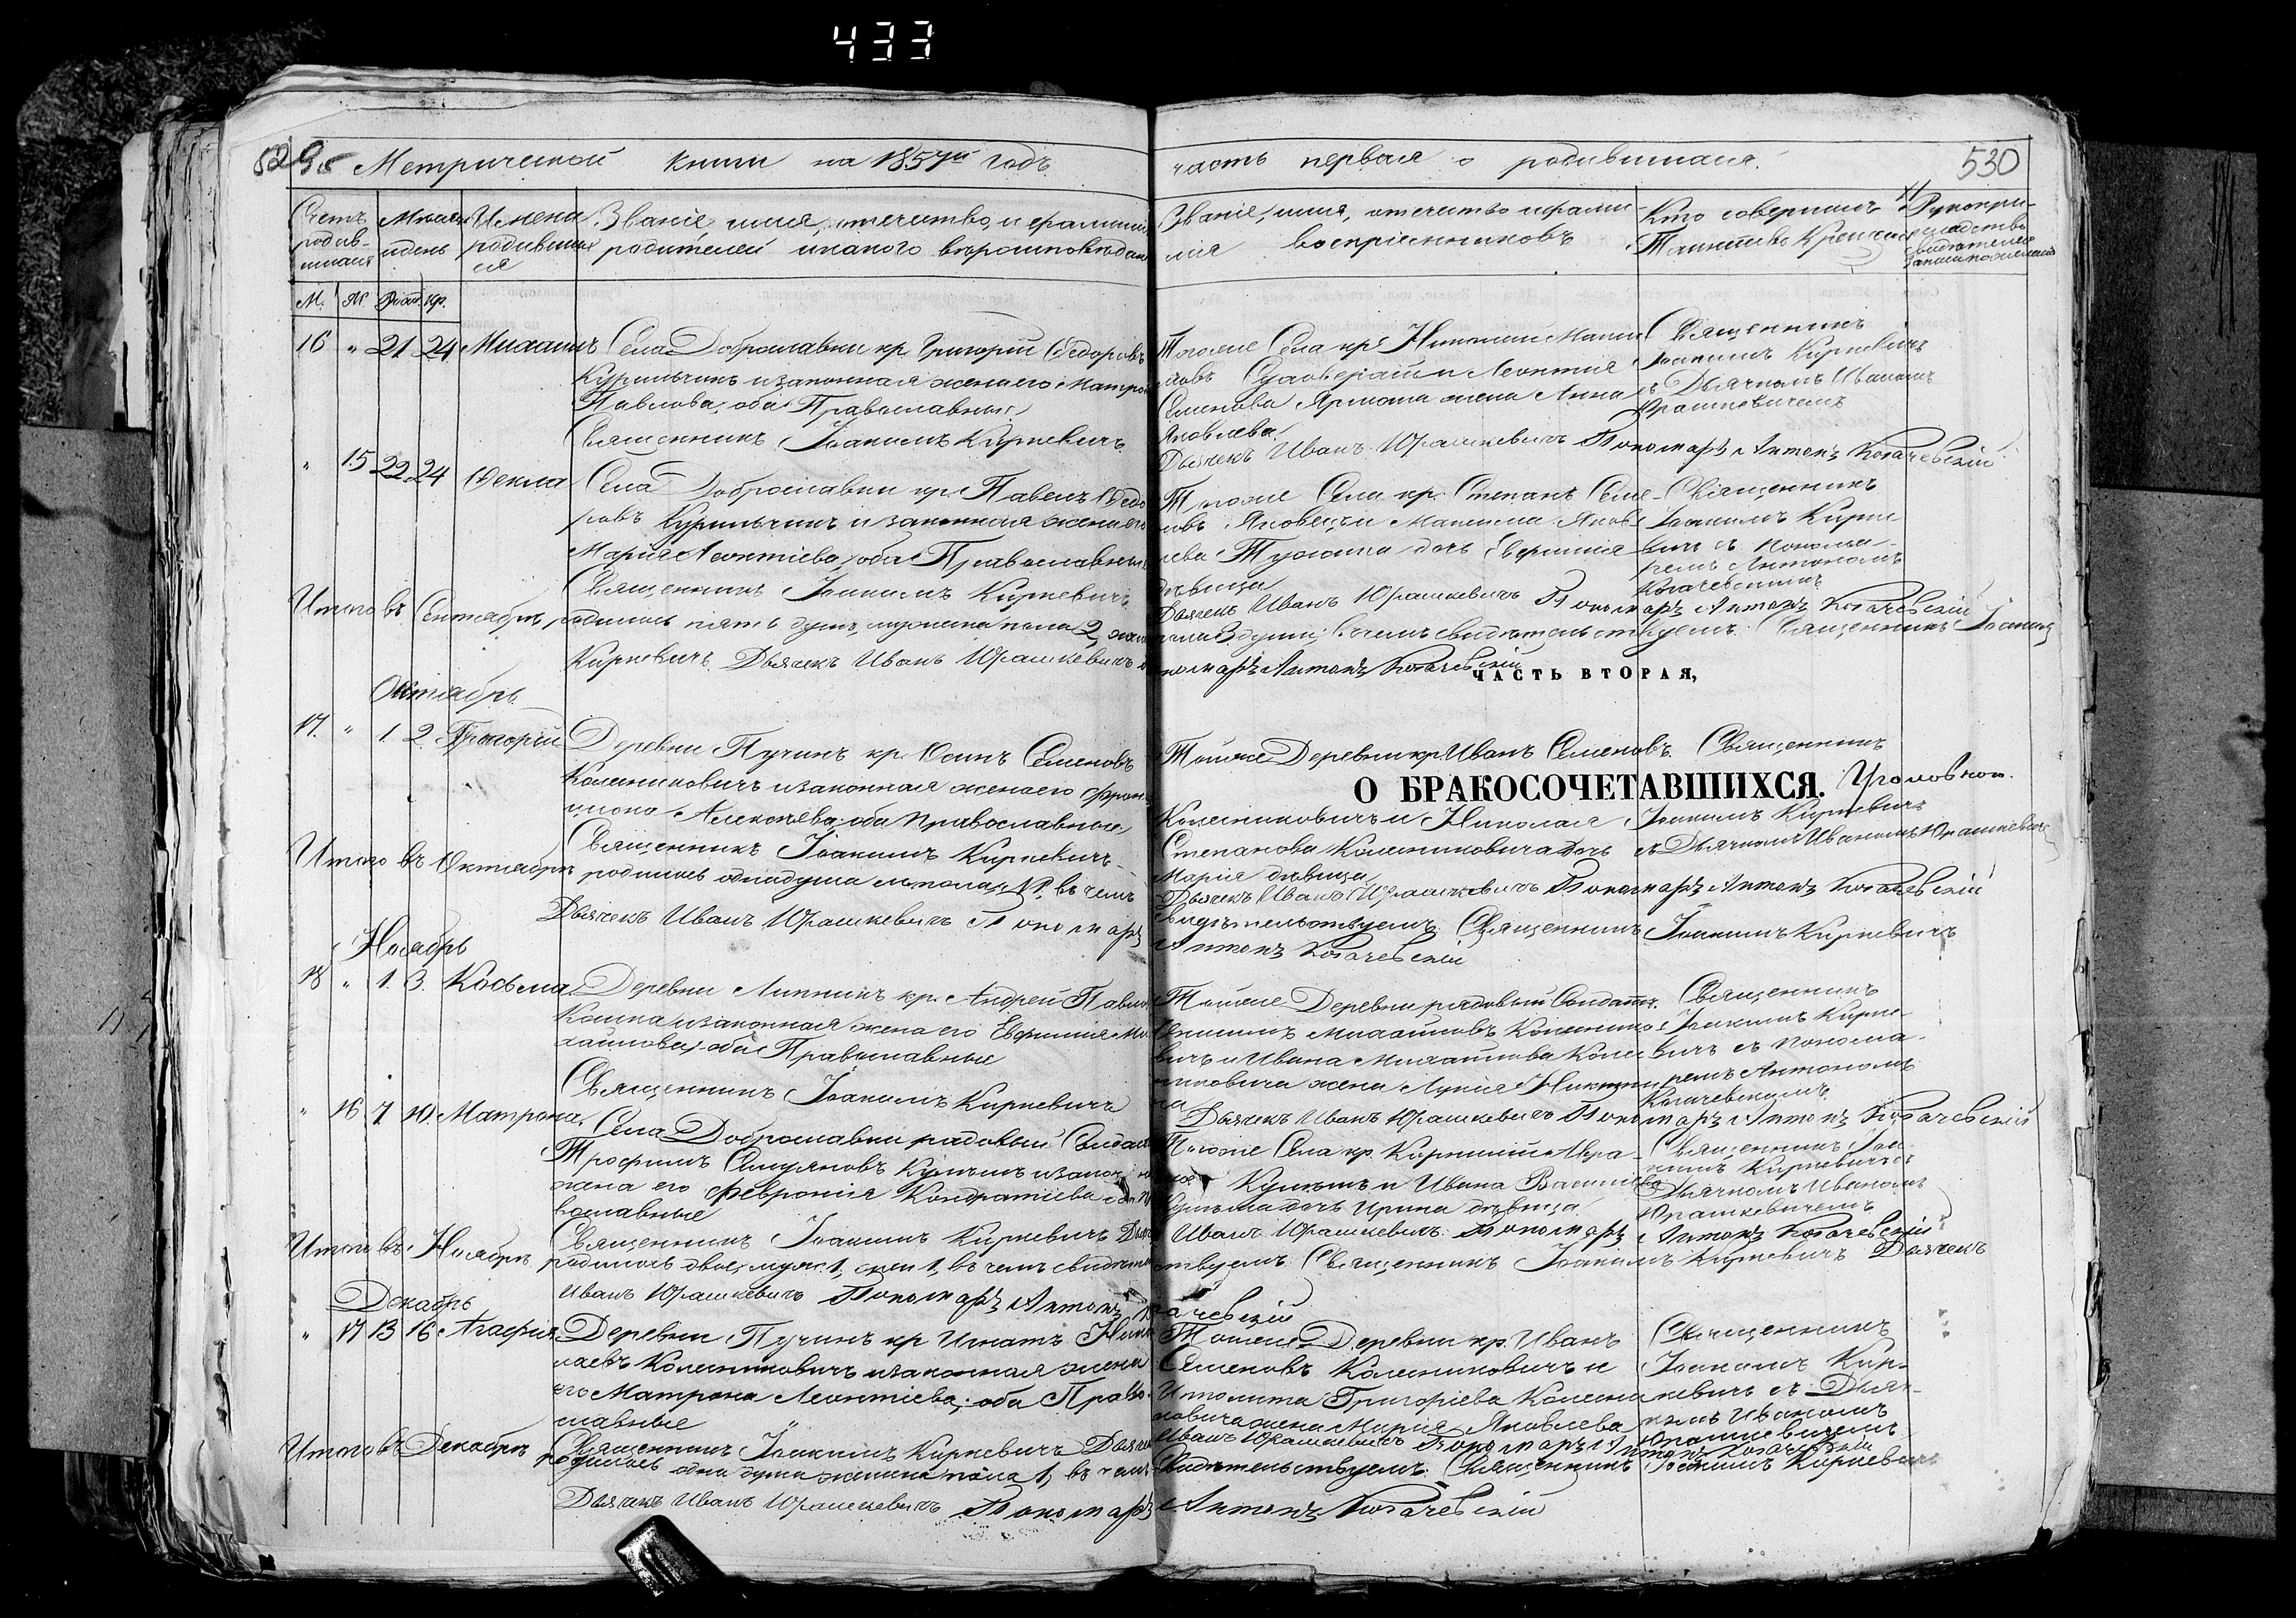 433
529
Метрической книги на 1857й годъ
часть первая о родившихся.
530
Счетъ родив-
шихся
Месяцъ
и день
Имена
родивших
ся
Званіе, имя, отечество, и фамилія
родителей и какого вѣроисповѣданія
Званіе, имя, отечество и фами-
лія воспріемниковъ
Кто совершалъ
Таинство Крещенія
Рукопри-
кладство
свидѣтелей
М. Ж. Рожд. кр.
16 " 21 24 Михаилъ
Села Доброславки кр. Григорій Ѳедоровъ
Курильчикъ и законная жена его Матрона
Павлова, оба Православные
Священникъ Іоакимъ Киркевичъ
Тогоже Села кр.
и Леонтія
Семенова Ярмоша жена Анна
Яковлева
Дьячекъ Иванъ Юрашкевичъ Пономарь Антонъ Когачевскій
Священникъ
Іоакимъ Киркевичъ
съ Дьячкомъ Иваномъ
Юрашкевичемъ
" 15 22 24 Ѳекла
Села Доброславки кр. Павелъ Ѳедо
ровъ Курильчикъ и законная жена его
Марія Леонтіева, оба Православные
Священникъ Іоакимъ Киркевичъ
Тогоже Села кр. Степанъ Семе-
новъ Яковецъ и Максима Яков-
лева дочь Евфимія
дѣвица
Дьячекъ Иванъ Юрашкевичъ Пономарь Антонъ Когачевскій
Священникъ
Іоакимъ Кирке
вичъ съ Понома-
ремъ Антономъ
Когачевскимъ
Итого въ Сентябрѣ родилось пять душъ, мужеска пола 2, женска
пола 3 души; въ чемъ свидѣтельствуемъ. Священникъ Іоакимъ
Киркевичъ Дьячекъ Иванъ Юрашкевичъ
Пономарь Антонъ Когачевскій
ЧАСТЬ ВТОРАЯ,
Октябрь
17. " 1 2 Григорій
Деревни Пучинъ кр. Осипъ Семеновъ
Колениковичъ и законная жена его
Алексѣева, оба Православные
Священникъ Іоакимъ Киркевичъ
Тойже Деревни кр. Иванъ Семеновъ.
О БРАКОСОЧЕТАВШИХСЯ.
Колениковичъ и Николая
Степанова Колениковича дочь
Марія дѣвица
Дьячекъ Иванъ Юрашкевичъ Пономарь Антонъ Когачевскій
Священникъ
Іоакимъ Киркевичъ
съ Дьячкомъ Иваномъ Юрашкевичемъ
Итого въ Октябрѣ родилось одна душа м. пола 1, въ чемъ
свидѣтельствуемъ: Священникъ Іоакимъ Киркевичъ
Дьячекъ Иванъ Юрашкевичъ Пономарь
Антонъ Когачевскій
Ноябрь
18 " 1. 3. Косьма
Деревни кр. Андрей Павловъ
и законная жена его Евфимія Ми
хайлова, оба Православные
Священникъ Іоакимъ Киркевичъ
Тойже Деревни рядовый Солдатъ
Михайловъ Коленико
вичъ и Ивана Михайлова Коле
никовича жена
Дьячекъ Иванъ Юрашкевичъ Пономарь Антонъ Когачевскій
Священникъ
Іоакимъ Кирке-
вичъ съ Понома-
ремъ Антономъ
Когачевскимъ
" 16 7 10 Матрона.
Села Доброславки рядовый Солдатъ
Трофимъ
жена его Февронія Кондратіева, оба Пра
вославные
Священникъ Іоакимъ Киркевичъ
Тогоже Села кр.
и Ивана Васильева
дочь Ирина дѣвица.
Иванъ Юрашкевичъ. Пономарь Антонъ Когачевскій
Священникъ Іоа
кимъ Киркевичъ съ
Дьячкомъ Иваномъ
Юрашкевичемъ
Итого въ Ноябрѣ родилось двое, муж. 1, жен 1, въ чемъ свидѣтель
ствуемъ. Священникъ Іоакимъ Киркевичъ Дьячекъ
Иванъ Юрашкевичъ Пономарь Антонъ Когачевскій
Декабрь
" 17 13 16 Агафія
Деревни Пучинъ кр Игнатъ Нико
лаевъ Колениковичъ и законная жена
его Матрона Леонтіева, оба Право-
славные
Священникъ Іоакимъ Киркевичъ Дьячекъ
Тойже Деревни кр. Иванъ
Семеновъ Колениковичъ и
Иполита Григоріева Колени
ковича жена Марія Яковлева
Иванъ Юрашкевичъ Пономарь Антонъ Когачевскій
Священникъ
Іоакимъ Кир-
кевичъ съ Дьяч-
комъ Иваномъ
Юрашкевичемъ
Итого въ Декабрѣ родилось одна душа женска пола 1, въ чемъ
свидѣтельствуемъ. Священникъ Іоакимъ Киркевичъ
Дьячекъ Иванъ Юрашкевичъ Пономарь
Антонъ Когачевскій